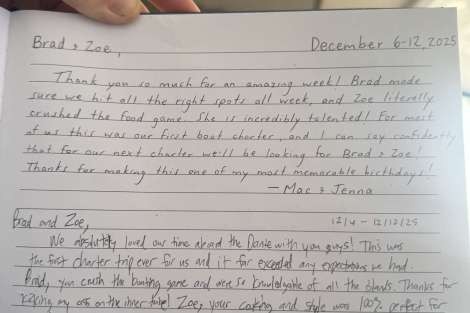 Brad & Zoe, December 6-12, 2025
Thank you so much for an amazing week! Brad made
sure we hit all the right spots all week, and Zoe literally
crushed the food game. She is incredibly talented! For most
of us this was our first boat charter, and I can say confidently
that for our next charter we'll be looking for Brad & Zoe!
Thanks for making this one of my most memorable birthdays!
— Mac & Jenna
Brad and Zoe, 12/4 - 12/12/25
We absolutely loved our time aboard the with you guys! This was
the first charter trip ever for us and it far exceeded any expectations we had.
Brad, you crush the boating game and were so knowledgable of all the islands. Thanks for
my ass on the inner tube! Zoe, your cooking and style were 100% perfect for